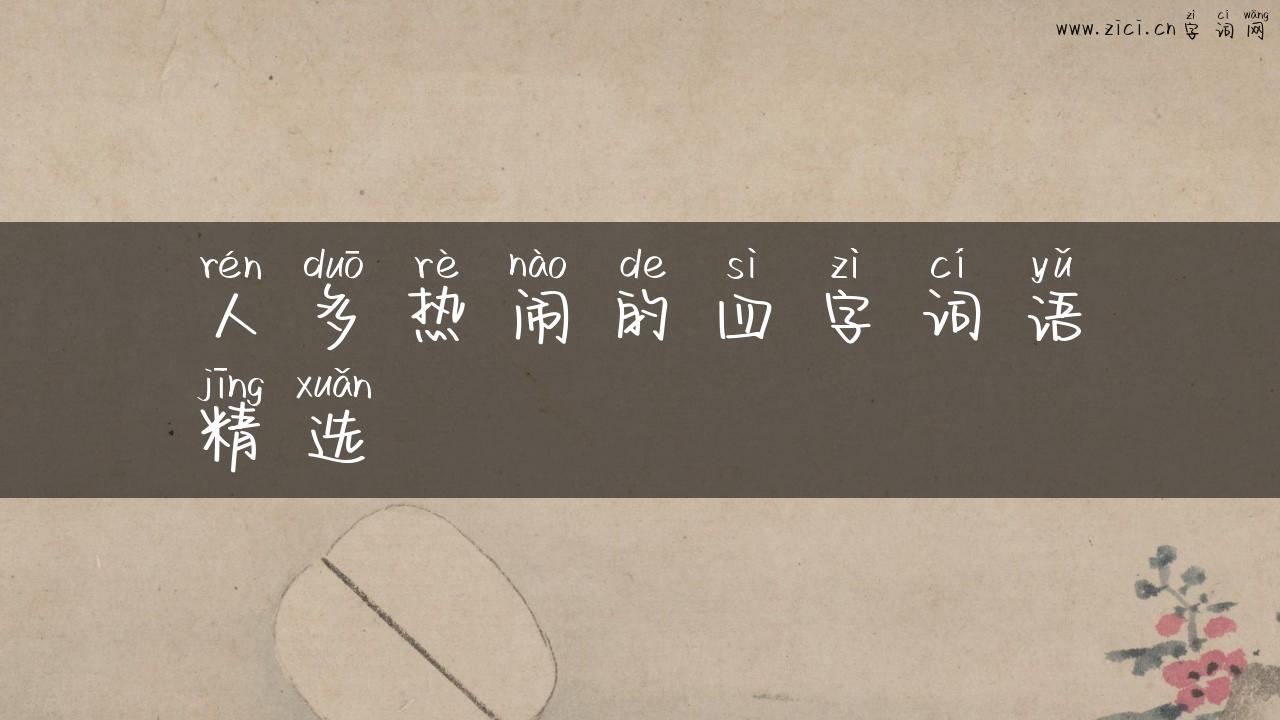 zì cí wǎng
www.zici.cn字词网
rén duō rè nào de sì zì cí yǔ
人多热闹的四字词语
jīng xuǎn
精选